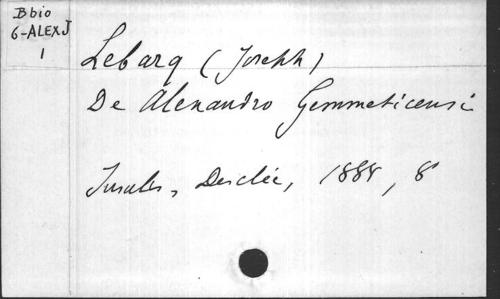 Bbio
6-ALEXJ
1
Lebarq (Joseph)
De Alexandro Gemmeticensi
Insulis, Desclée, 1888, 8°